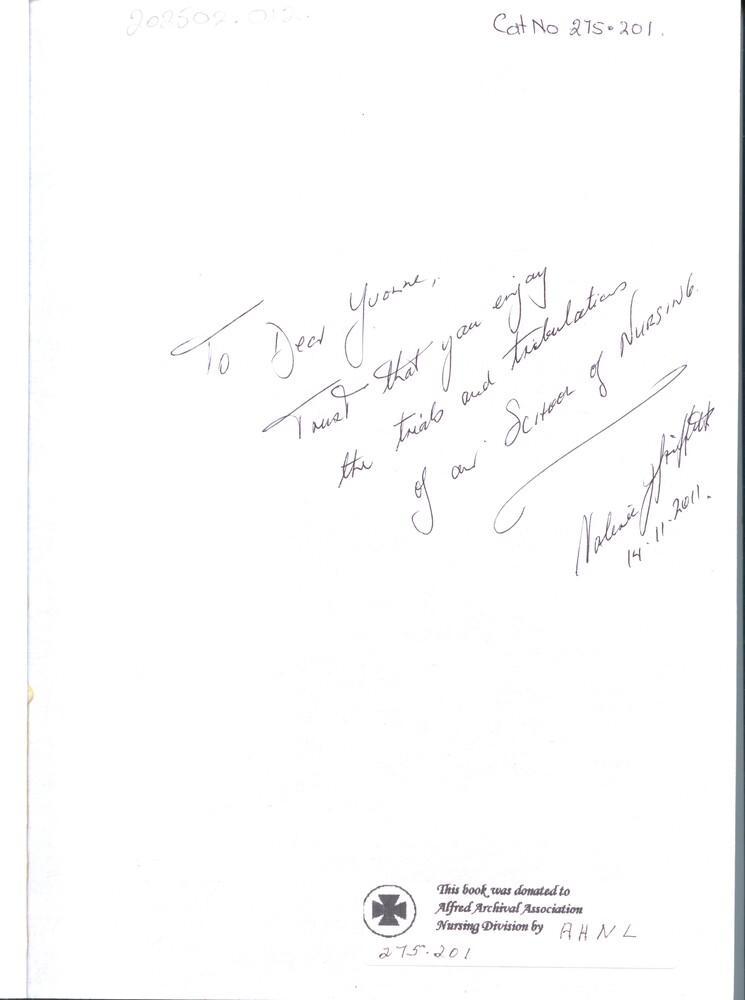 202502.012
Cat No 275.201.
To Dear Yvonne,
Trust that you enjoy
the trials and tribulations
of our School of NURSING.
Valerie Griffiths
14.11.2011.
This book was donated to
Alfred Archival Association
Nursing Division by AHNL
275.201